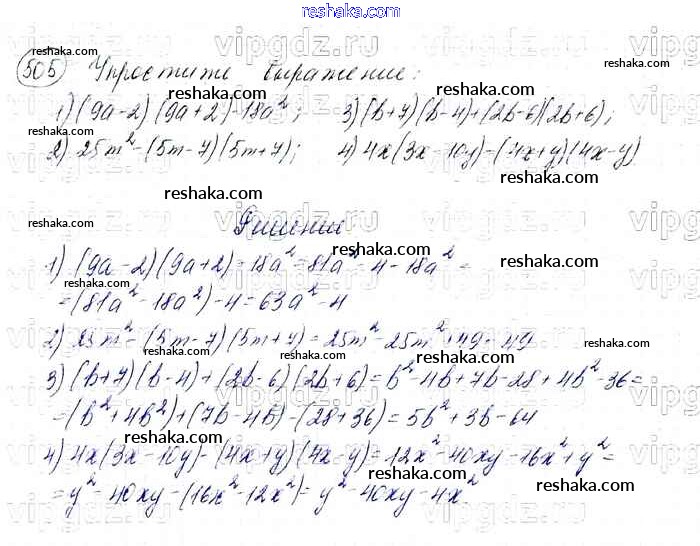 reshaka.com
505 Упростите выражение:
1) (9a-2)(9a+2)-18a²; 3) (b+7)(b-4)+(2b-6)(2b+6);
2) 25m²-(5m-7)(5m+7); 4) 4x(3x-10y)-(4x+y)(4x-y)
Решение
1) (9a-2)(9a+2)-18a²=81a²-4-18a²=
=(81a²-18a²)-4=63a²-4
2) 25m²-(5m-7)(5m+7)=25m²-25m²+49=49
3) (b+7)(b-4)+(2b-6)(2b+6)=b²-4b+7b-28+4b²-36=
=(b²+4b²)+(7b-4b)-(28+36)=5b²+3b-64
4) 4x(3x-10y)-(4x+y)(4x-y)=12x²-40xy-16x²+y²=
=y²-40xy-(16x²-12x²)=y²-40xy-4x²
reshaka.com